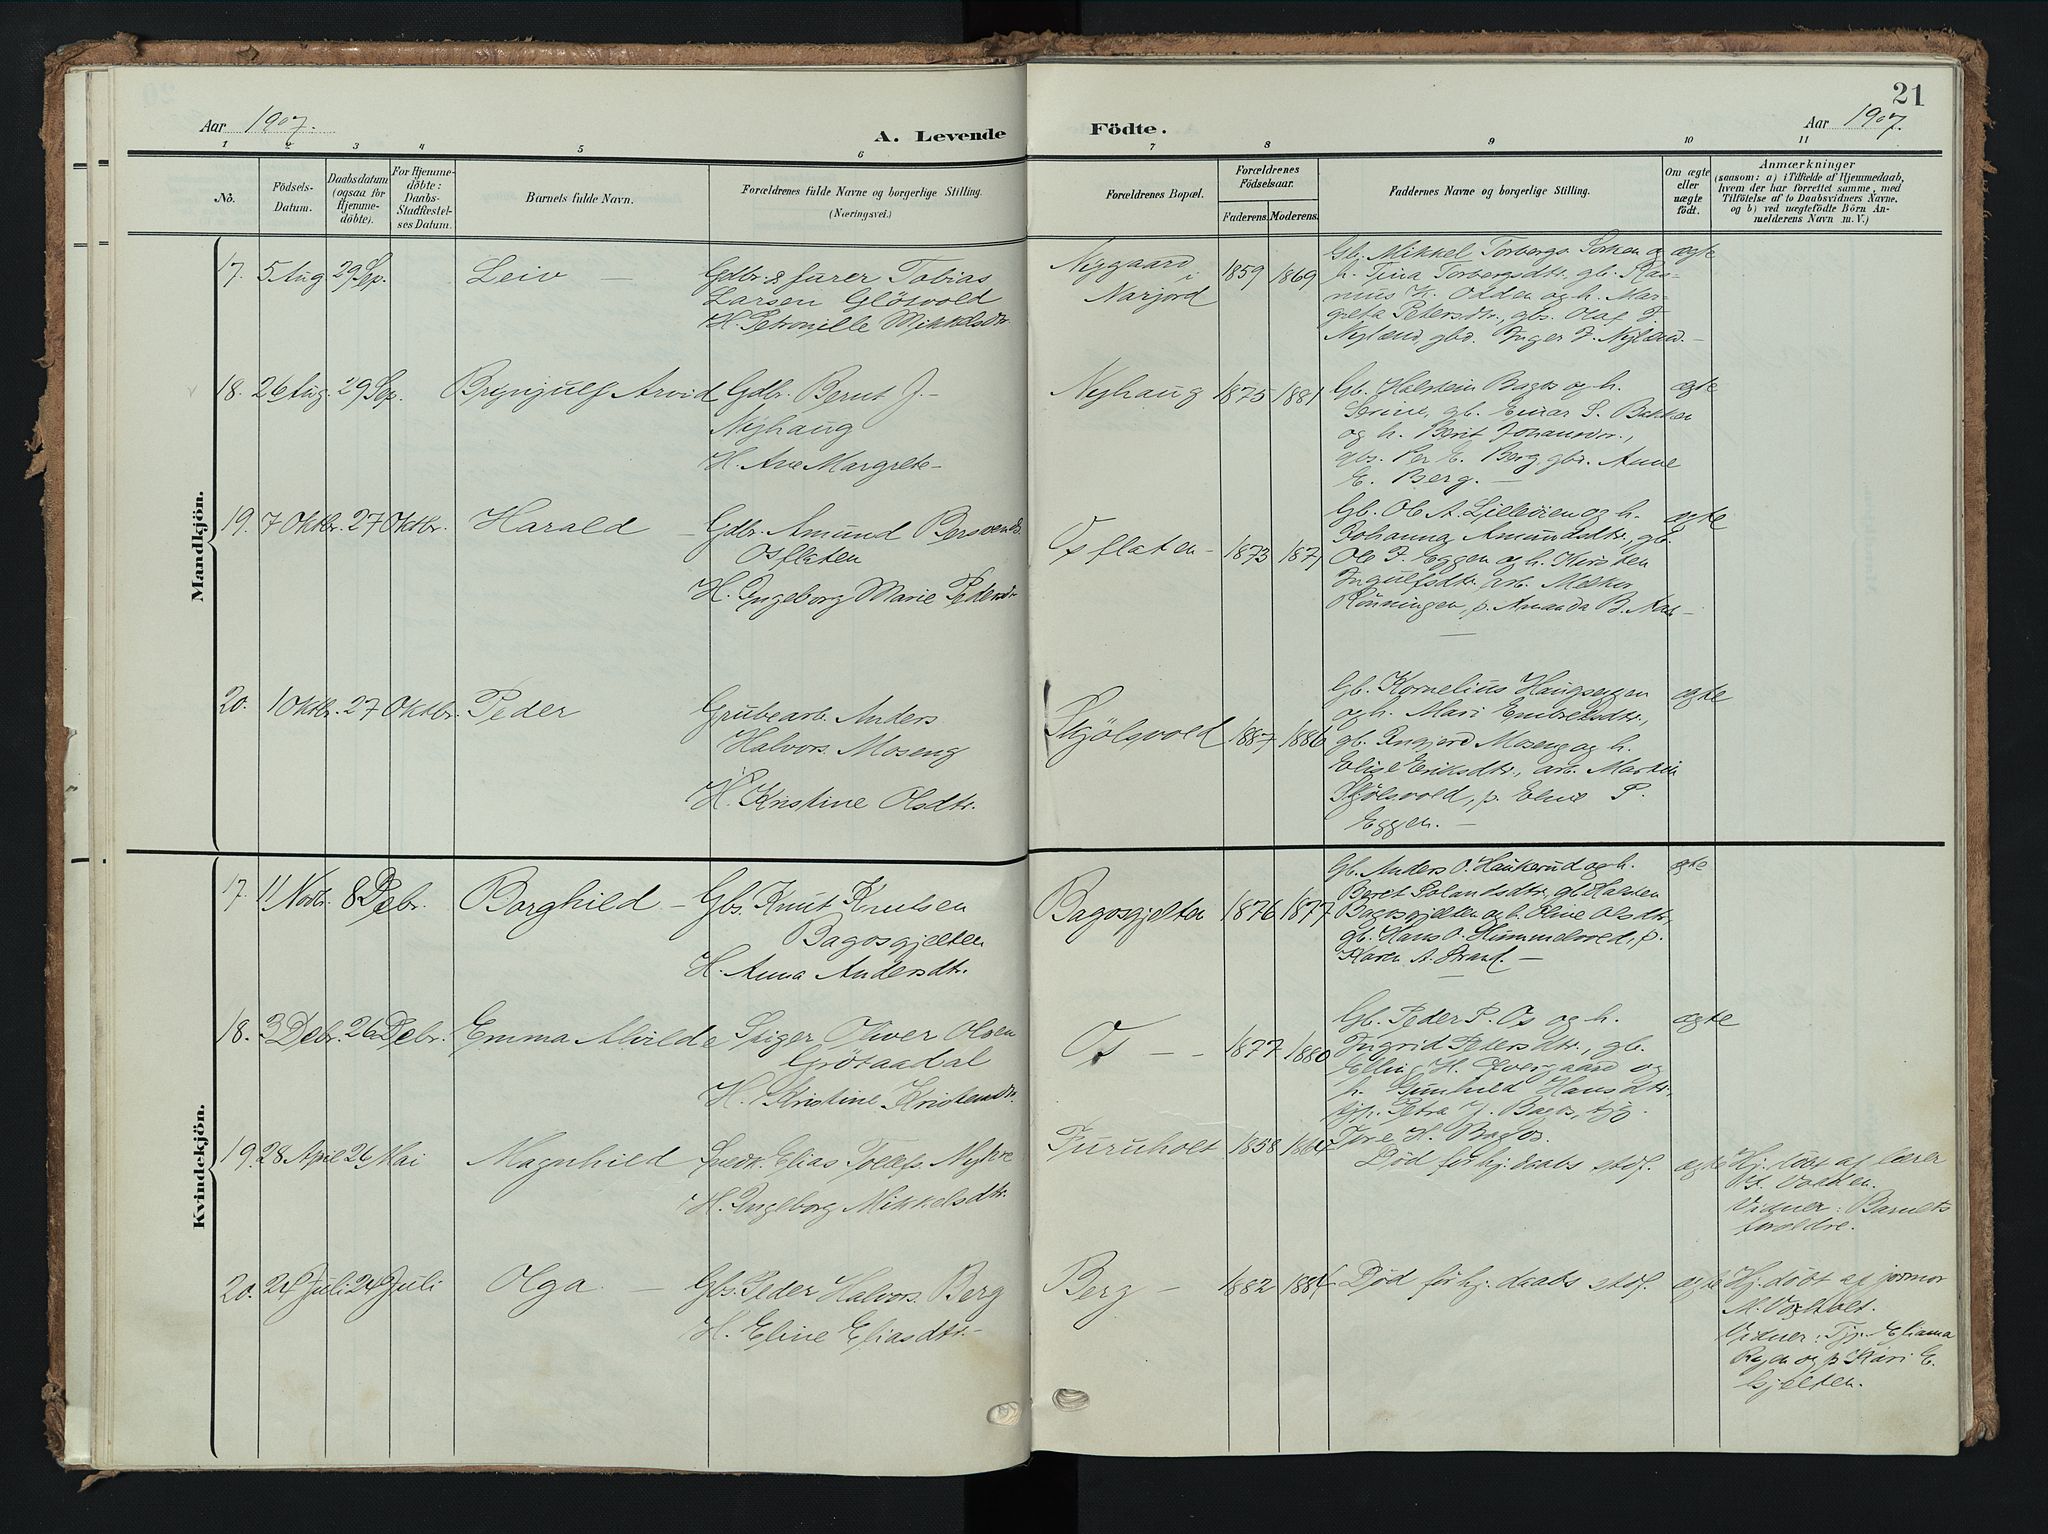 21
Aar 1907.
A. Levende Födte.
Aar 1907.
1 2 3 4 5 6 7 8 9 10 11
No.
Födsels-
Datum.
Daabsdatum
(ogsaa for
Hjemme-
döbte).
For Hjemme-
döbte:
Daabs-
Stadfæstel-
ses Datum.
Barnets fulde Navn.
Forældrenes fulde Navne og borgerlige Stilling.
(Næringsvei.)
Forældrenes Bopæl.
Forældrenes
Födselsaar.
Faderens. Moderens.
Faddernes Navne og borgerlige Stilling.
Om ægte
eller
uægte
födt.
Anmærkninger
(saasom: a) i Tilfælde af Hjemmedaab,
hvem der har forrettet samme, med
Tilföielse af to Daabsvidners Navne,
og b) ved uægtefödte Börn An-
melderens Navn m. V.)
Mandkjön.
17. 5 Aug 29 Sep. Leiv —
Gdbr. & furer Tobias
Larsen Glösvold
H. Petronille Mikkelsdtr.
Nygaard
i
Narjord
1859 1869
Gb. Mikkel Torbergs.
h. Tina Torbergsdtr. gb. Ras-
mus K. Odden og h. Mar-
greta Petersdtr., gbs. Olaf T.
Nyland, gbd. Inger J. Nyland. —
ægte
18. 26 Aug. 29 Sep. Brynjulf Arvid
Gdbr. Bernt J. —
Nyhaug
H. Ane Margrete —
Nyhaug 1875 1881
Gb. Halstein Bagos og h.
gb. Einar S. Bakken
og h. Berit
gbs. Per E. Berg, gbd. Anne
E. Berg. —
ægte
19. 7 Oktbr. 27 Oktbr. Harald —
Gdbr. Amund
Osflaten
H. Ingeborg Marie Pedersdtr
Osflaten — 1873 1871
Gb. Ole A. Lilleöien og h.
Johanna Amundsdtr., gb.
Ole J. Eggen og h. Kirsten
Ingulfsdtr. arb.
Rönningen, p. Amanda B. —
ægte
20. 1 Oktbr. 27 Oktbr. Peder
Grubearb. Anders
Halvors. Moseng
H. Kristine Olsdtr.
Skjölsvold 1887 1886
Gb. Kornelius Haugsergen
og h. Mari Embretsdtr.,
gb. Moseng og h.
Elise Eriksdtr., arb. Martin
Skjölsvold, p. Eline P.
Eggen. —
ægte
Kvindekjön.
17. 11 Novbr. 8 Debr. Borghild —
Gbs. Knut Knutsen
Bagosgjelten
H. Anna Andersdtr.
Bagosgjelten 1876 1877
Gb. Anders O. Haukerud og h.
Beret gb.
Bagosgjelten og h. Oline Olsdtr.
gb. Hans O. Hummelvold, p.
Karen A. Strand. —
ægte
18. 3 Debr. 26 Debr. Emma Alvilde
Stiger Oliver Olsen
Grötaadal
H. Kristine Kristensdtr.
Os — — 1877 1880
Gb. Peder P. Os og h.
Ingrid Petersdtr., gb.
Elling H. og
h. Gunhild Hansdtr.,
tjp. Petra J. Bagos, tjg.
H. Bagos.
ægte
19. 28 April 26 Mai Magnhild
Snedk. Elias Tollefs. Myhre
H. Ingeborg Mikkelsdtr.
Furuholt 1858 1864
Död för hj.daabs stof.
ægte
Hj.döbt af lærer
Vidner: Barnets
foreldre.
20. 24 Juli 24 Juli Olga —
Gbs. Peder Halvors. Berg
H. Eline Eliasdtr. —
Berg — 1882 1884
Död för hj.daabs stof.
ægte
Hj.döbt af jormor
M.
Vidner: Tjp. Eliama
og p. Kari E.
Gjelten.